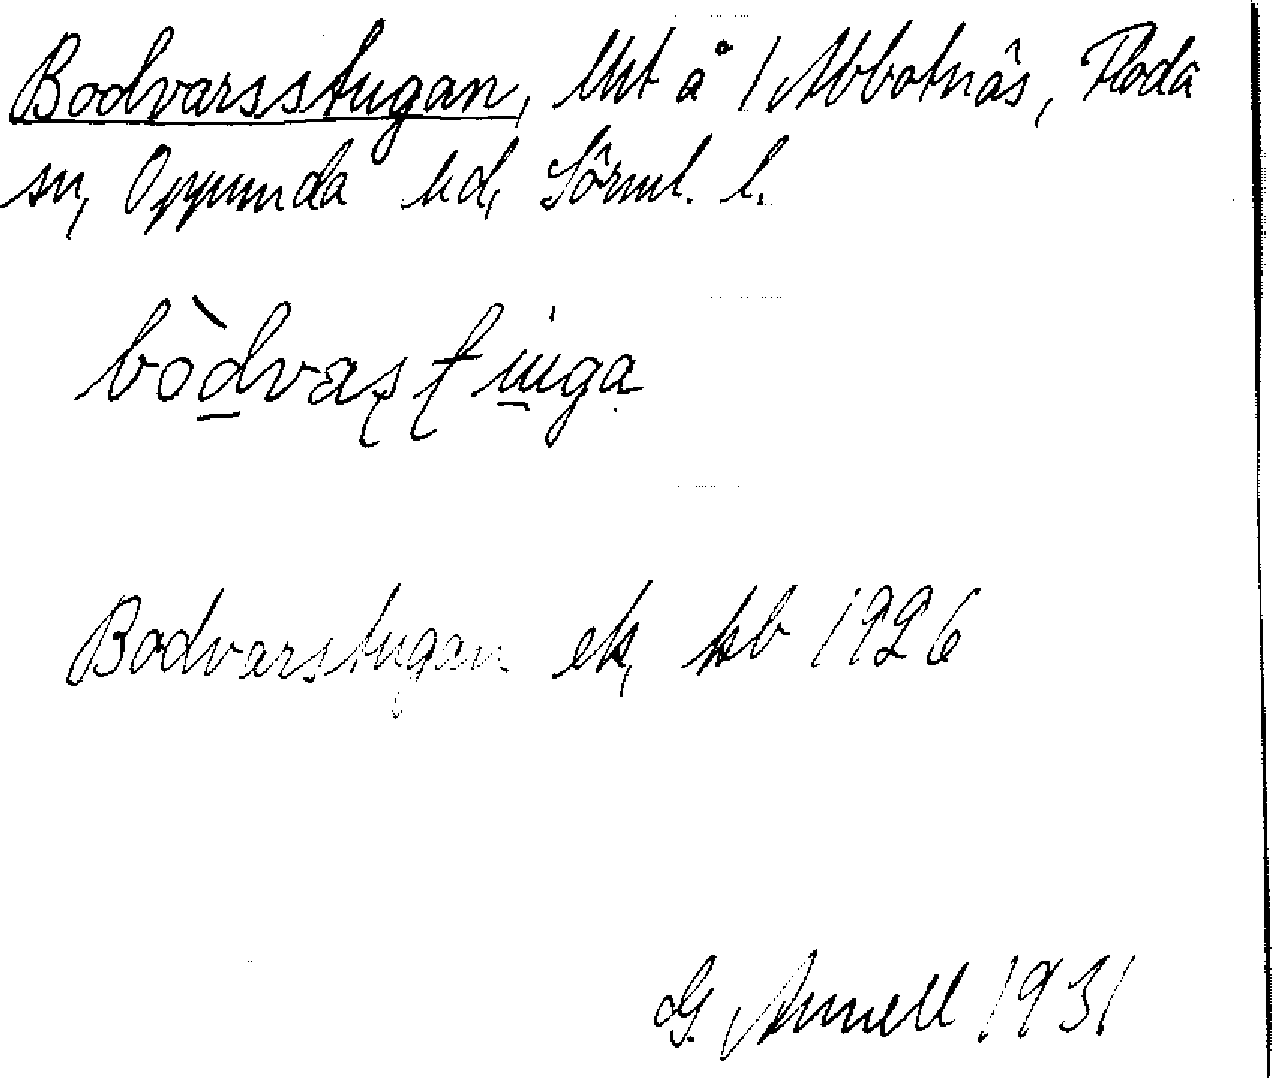 Bodvarsstugan, lht å 1 Abbotnäs, Floda
sn, Oppunda hd, Sörml. l.
bòdvaʂʈɯga
Bodvarstugan ek, kb 1926
G. Annell 1931